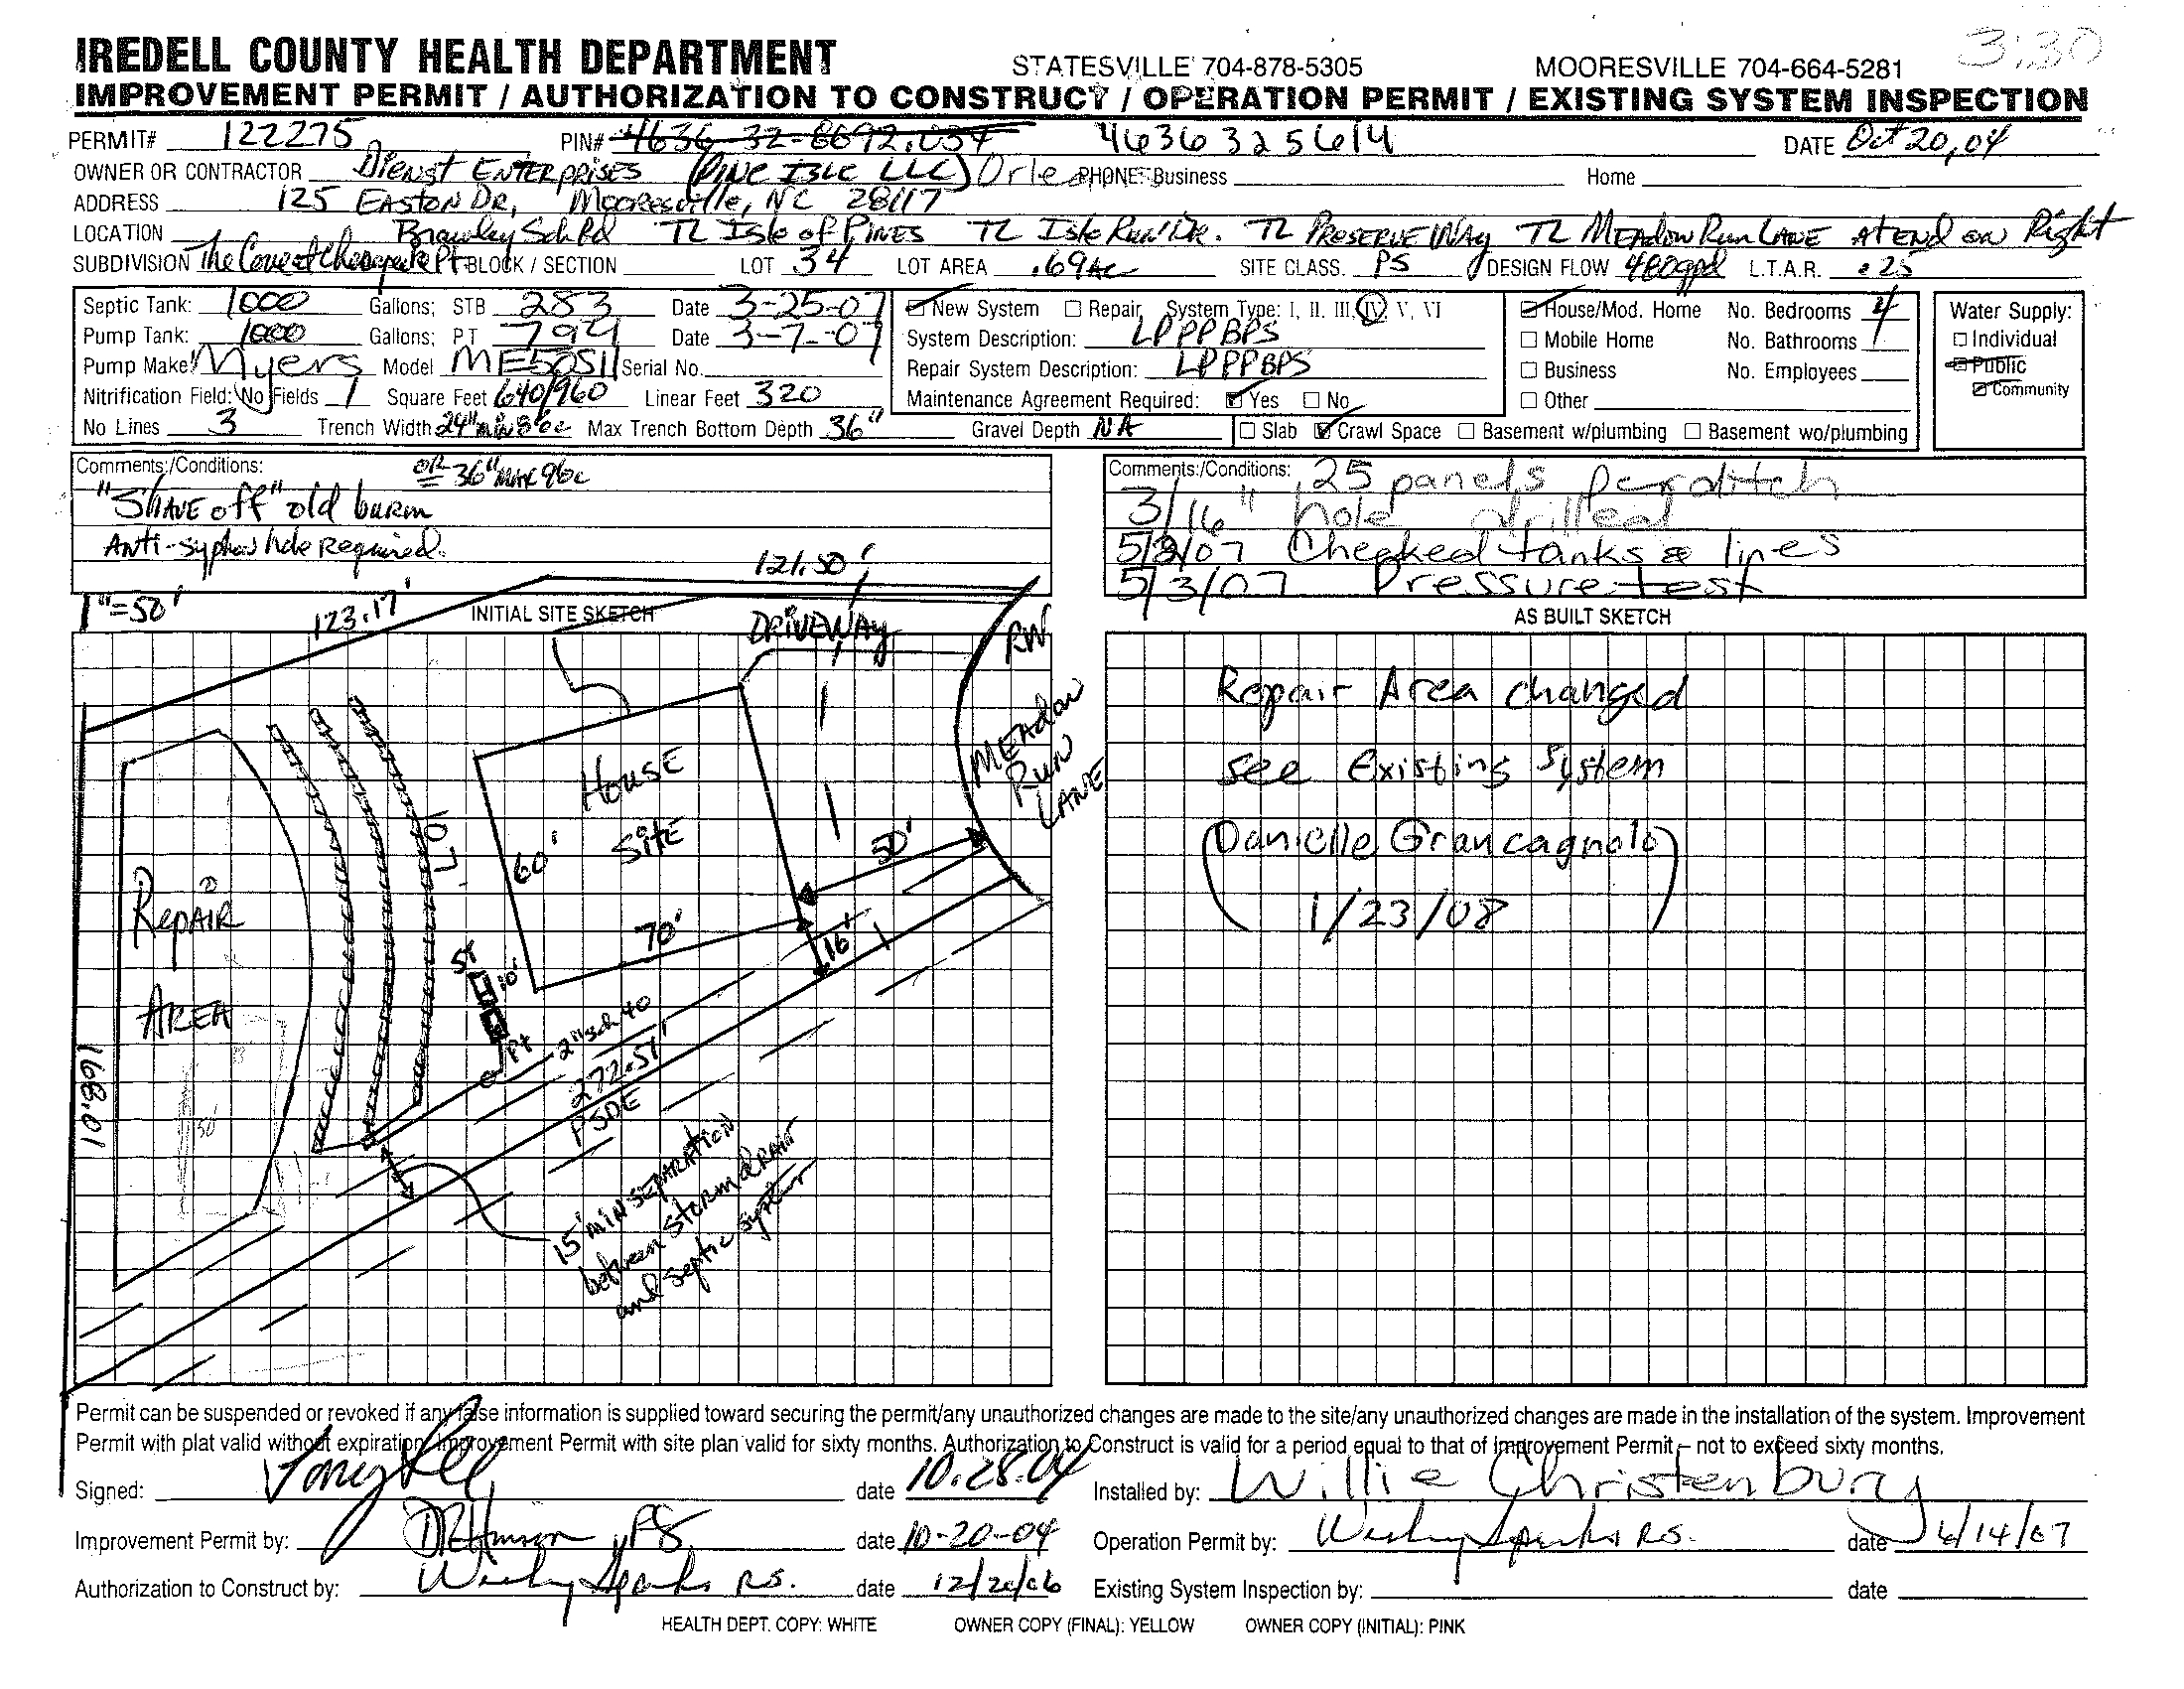 3:30
IREDELL COUNTY HEALTH DEPARTMENT STATESVILLE 704-878-5305 MOORESVILLE 704-664-5281
IMPROVEMENT PERMIT / AUTHORIZATION TO CONSTRUCT / OPERATION PERMIT / EXISTING SYSTEM INSPECTION
PERMIT# 122275 PIN# 4636-32-8692.034 4636325614 DATE Oct 20, 04
OWNER OR CONTRACTOR Dienst Enterprises (Pine Isle LLC) PHONE: Business Home
ADDRESS 125 Easton Dr, Mooresville, NC 28117
LOCATION Brawley Sch Rd TL Isle of Pines TL Isle Run Dr. TL Preserve Way TL Meadow Run Lane at end on Right
SUBDIVISION The Cove at Chesapeake Pt BLOCK / SECTION LOT 34 LOT AREA .69Ac SITE CLASS. PS DESIGN FLOW 480gpd L.T.A.R. .25
Septic Tank: 1000 Gallons; STB 283 Date 3-25-07
Pump Tank: 1000 Gallons; PT 794 Date 3-7-07
Pump Make: Myers Model ME50S11 Serial No.
Nitrification Field: No Fields 1 Square Feet 640/960 Linear Feet 320
No Lines 3 Trench Width 24" min 8'oc Max Trench Bottom Depth 36" Gravel Depth NA
New System Repair System Type: I, II. III, IV V, VI
System Description: LPPPBPS
Repair System Description: LPPPBPS
Maintenance Agreement Required: Yes No
House/Mod. Home No. Bedrooms 4
Mobile Home No. Bathrooms
Business No. Employees
Other
Slab Crawl Space Basement w/plumbing Basement wo/plumbing
Water Supply:
Individual
Public
Community
Comments:/Conditions: or 36" Max 9'oc
"Shave off" old burm
Anti-syphon hole Required.
Comments:/Conditions: 25 panels per ditch
3/16" hole drilled
5/2/07 Checked tanks & lines
5/3/07 Pressure test
1"=50'
INITIAL SITE SKETCH
123.17'
121.50'
DRIVEWAY
RW
MEADOW
RUN
LANE
HOUSE
SITE
60'
70'
50'
16'
107'
REPAIR
AREA
168.01
ST
10'
PT
2" sch 40
272.51'
PSDE
15' MIN SEPARATION
between storm drain
and septic system
AS BUILT SKETCH
Repair Area changed
see Existing System
(Danielle Grancagnolo)
1/23/08
Permit can be suspended or revoked if any false information is supplied toward securing the permit/any unauthorized changes are made to the site/any unauthorized changes are made in the installation of the system. Improvement
Permit with plat valid without expiration. Improvement Permit with site plan valid for sixty months. Authorization to Construct is valid for a period equal to that of Improvement Permit – not to exceed sixty months.
Signed: date 10.28.04 Installed by: Willie Christenbury
Improvement Permit by: date 10-20-04 Operation Permit by: Wesley Sparks RS. date 6/14/07
Authorization to Construct by: Wesley Sparks RS. date 12/20/06 Existing System Inspection by: date
HEALTH DEPT. COPY: WHITE OWNER COPY (FINAL): YELLOW OWNER COPY (INITIAL): PINK